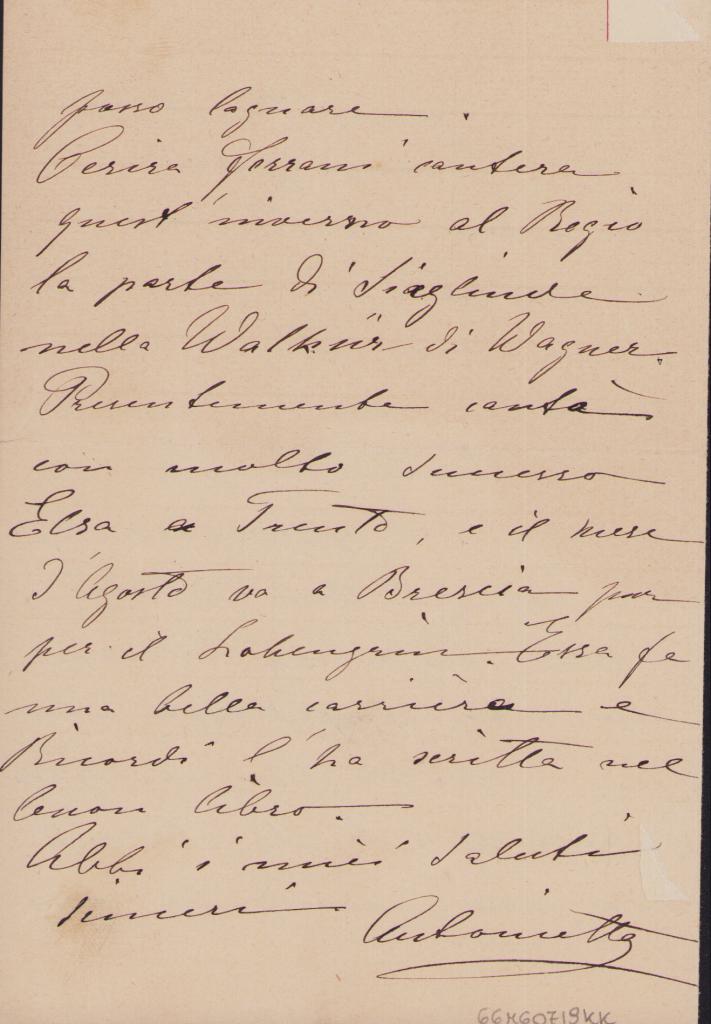 posso lagnare.
Cesira Ferrani canterà
quest'inverno al Regio
la parte di Siaglinde
nella Walkür di Wagner.
Presentemente canta
con molto successo
Elsa a Trento, e il mese
d'Agosto va a Brescia pur
per il Lohengrin. Essa fa
una bella carriera e
Ricordi l'ha scritta nel
buon libro.
Abbi i miei saluti
sinceri
Antonietta
66M60719KK